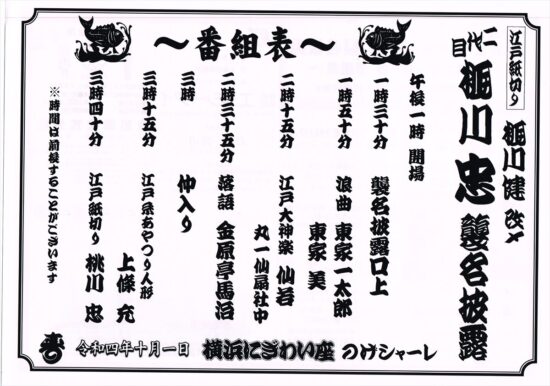 〜番組表〜
江戸紙切り 桃川健 改め
二代目 桃川忠 襲名披露
午後一時 開場
一時三十分 襲名披露口上
一時五十分 浪曲 東家一太郎
東家 美
二時十五分 江戸大神楽 仙若
丸一仙翁社中
二時三十五分 落語 金原亭馬治
三時 仲入り
三時十五分 江戸糸あやつり人形
上條 充
三時四十分 江戸紙切り 桃川 忠
※時間は前後することがございます
令和四年十月一日 横浜にぎわい座 のげシャーレ